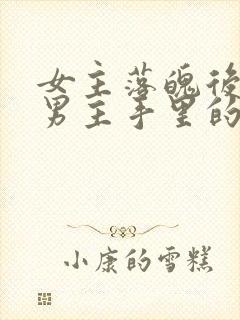 女主落魄後
男主手里的
小康的雪糕